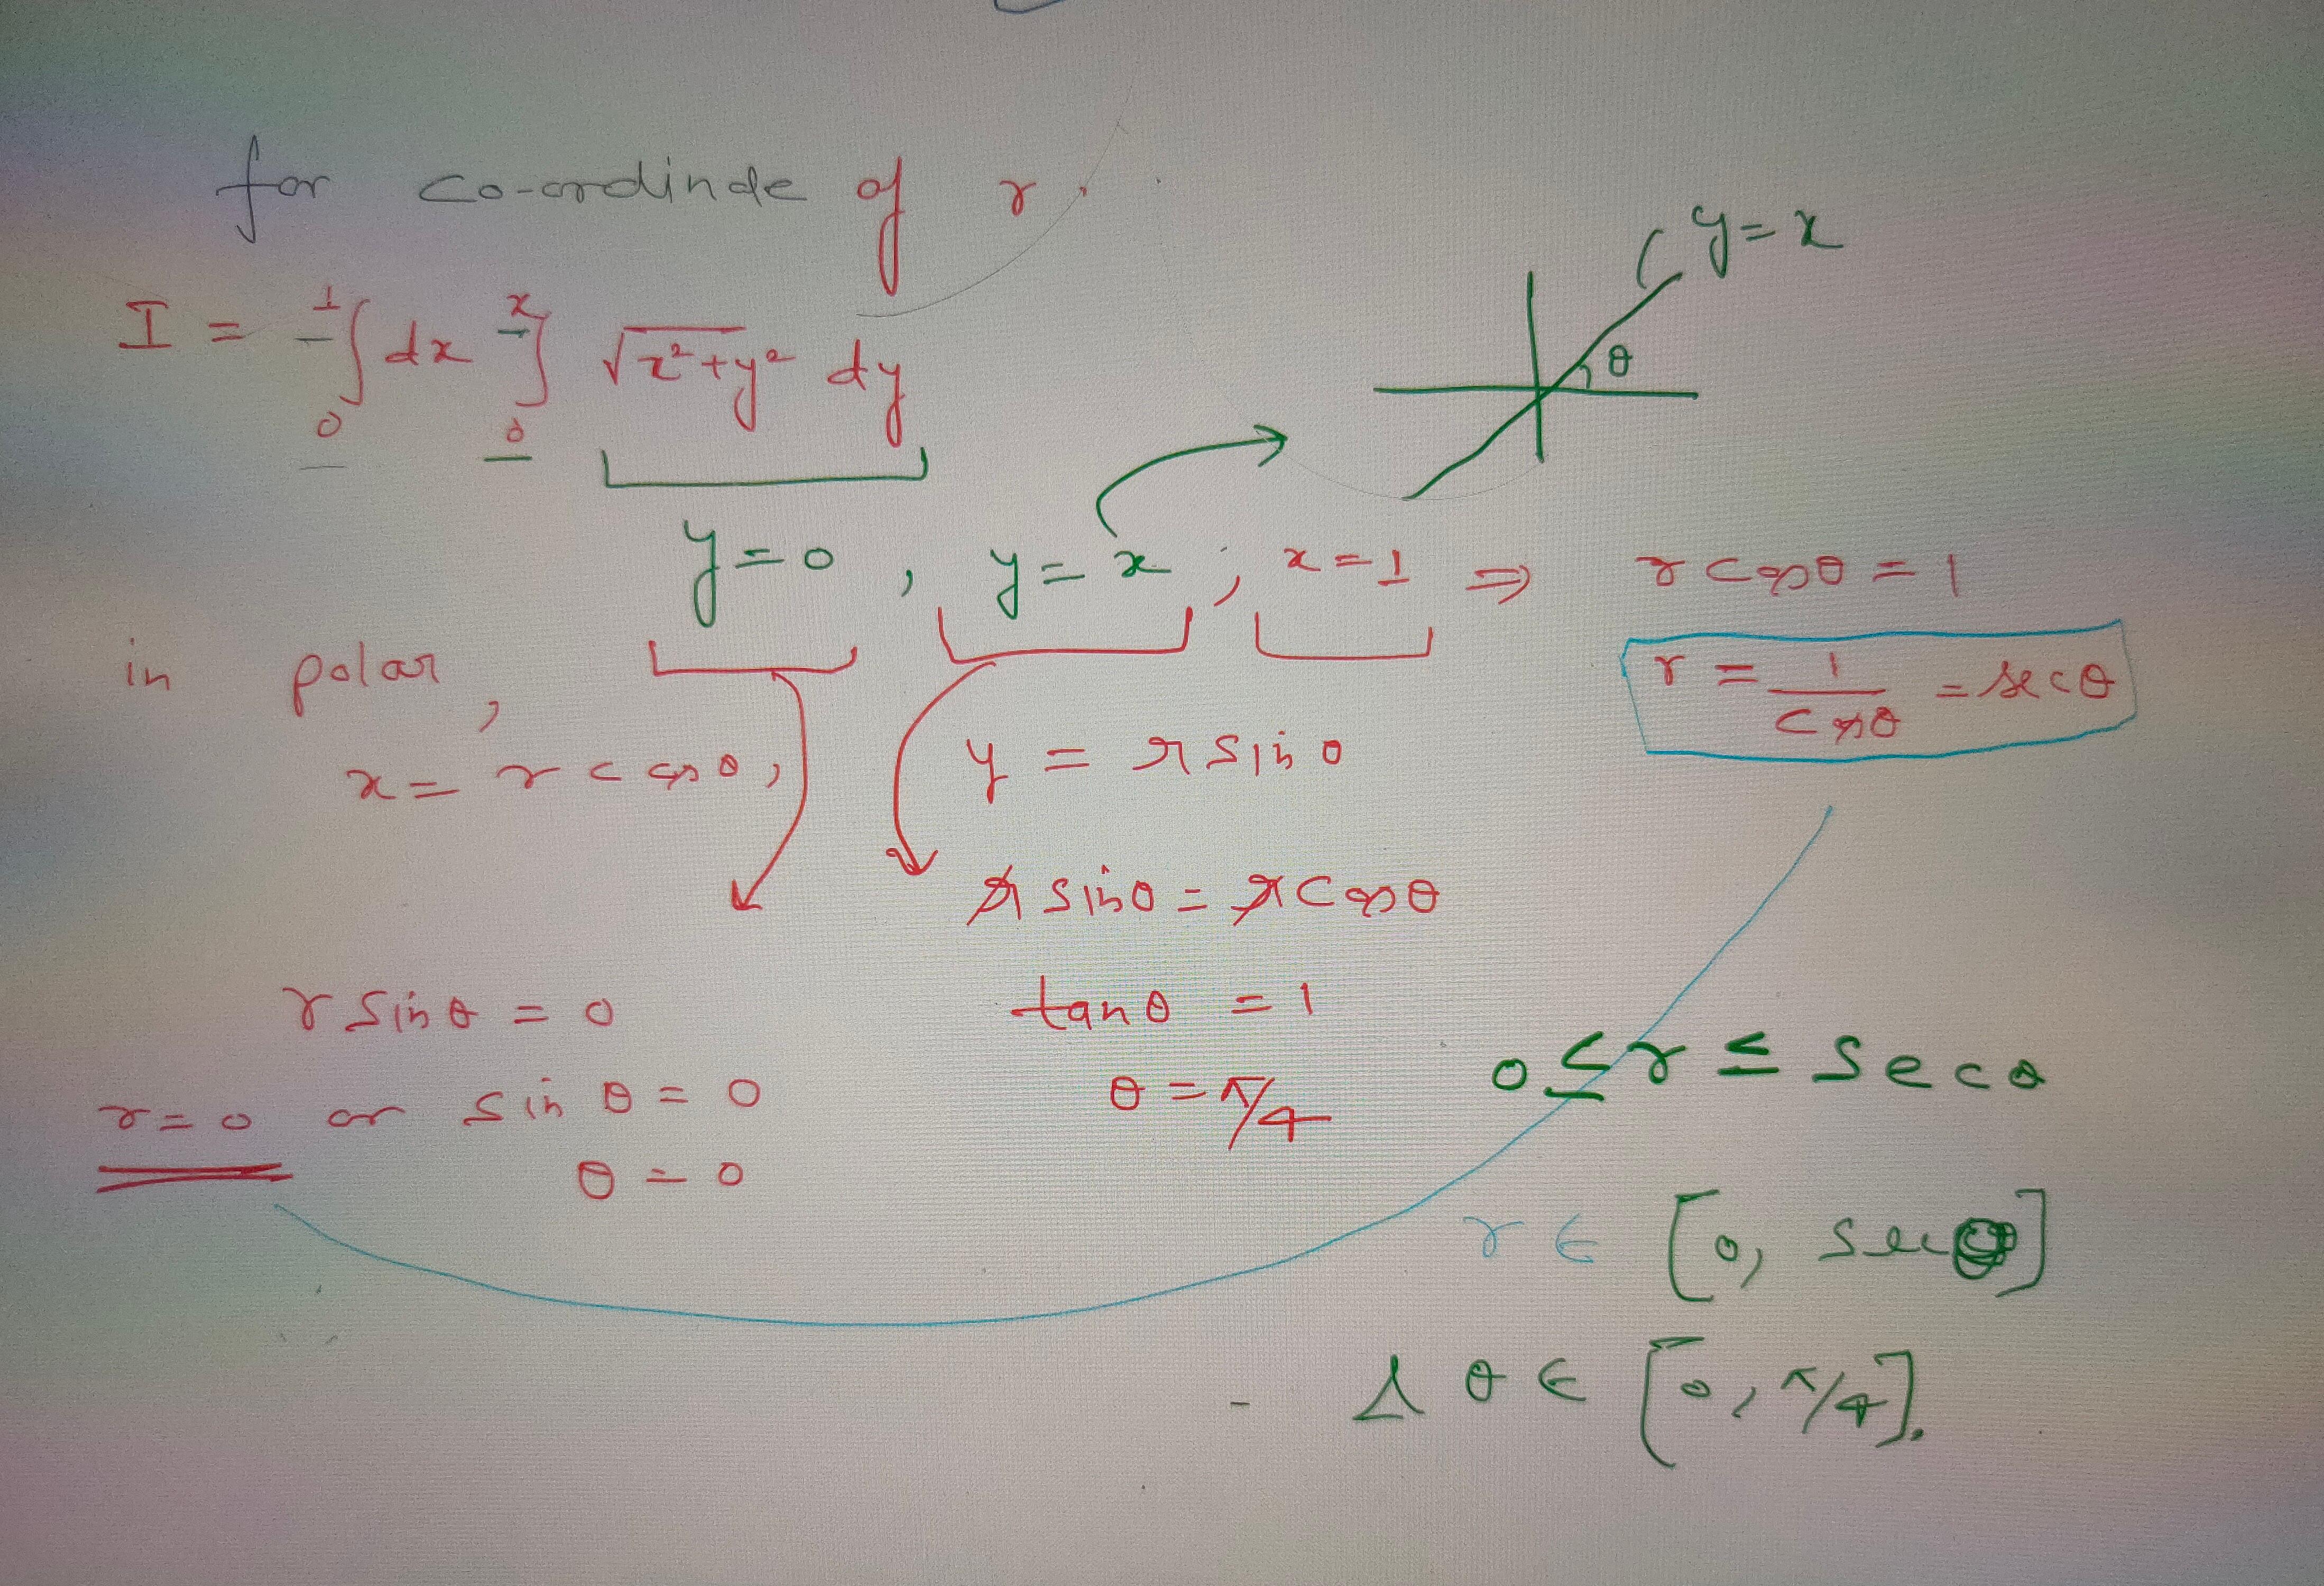 for co-ordinde of r.
y = x
θ
I = ₀∫¹ dx ₀∫ˣ √x²+y² dy
y = 0 , y = x ; x = 1 ⇒ r cosθ = 1
r = 1/cosθ = secθ
in polar,
x = r cosθ, y = r sinθ
r sinθ = r cosθ
r sinθ = 0
tanθ = 1
r = 0 or sin θ = 0
θ = π/4
0 ≤ r ≤ secθ
θ = 0
r ∈ [0, secθ]
θ ∈ [0, π/4].